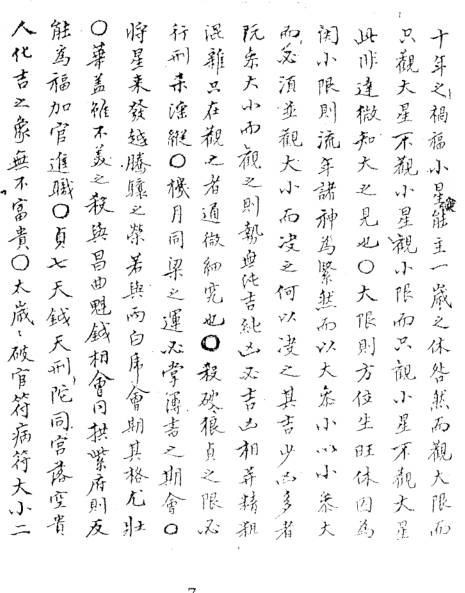 十年之禍福小星能主一歲之休咎然而觀大限而
只觀大星不觀小星觀小限而只觀小星不觀大星
此非達微知大之見也〇大限則方位生旺休囚為
關小限則流年諸神為緊然而以大叅小以小叅大
而必須並觀大小而决之何以决之其吉少凶多者
既叅大小而觀之則孰無純吉純凶必吉凶相并精粗
混雜只在觀之者通微細究也〇殺破狼貞之限必
行刑柔深縱〇機月同梁之運必掌簿書之期會〇
將星来發越騰驤之榮若與雨白虎會期其格尤壯
〇華盖雖不美之殺與昌曲魁鉞相會同拱紫府則反
能為福加官進職〇貞七天鉞天刑陀同宮落空貴
人化吉之象無不富貴〇太歲歲破官符病符大小二
7